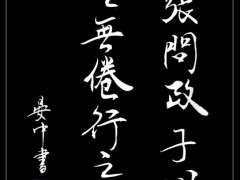 張問政子
無倦行之
晏中書